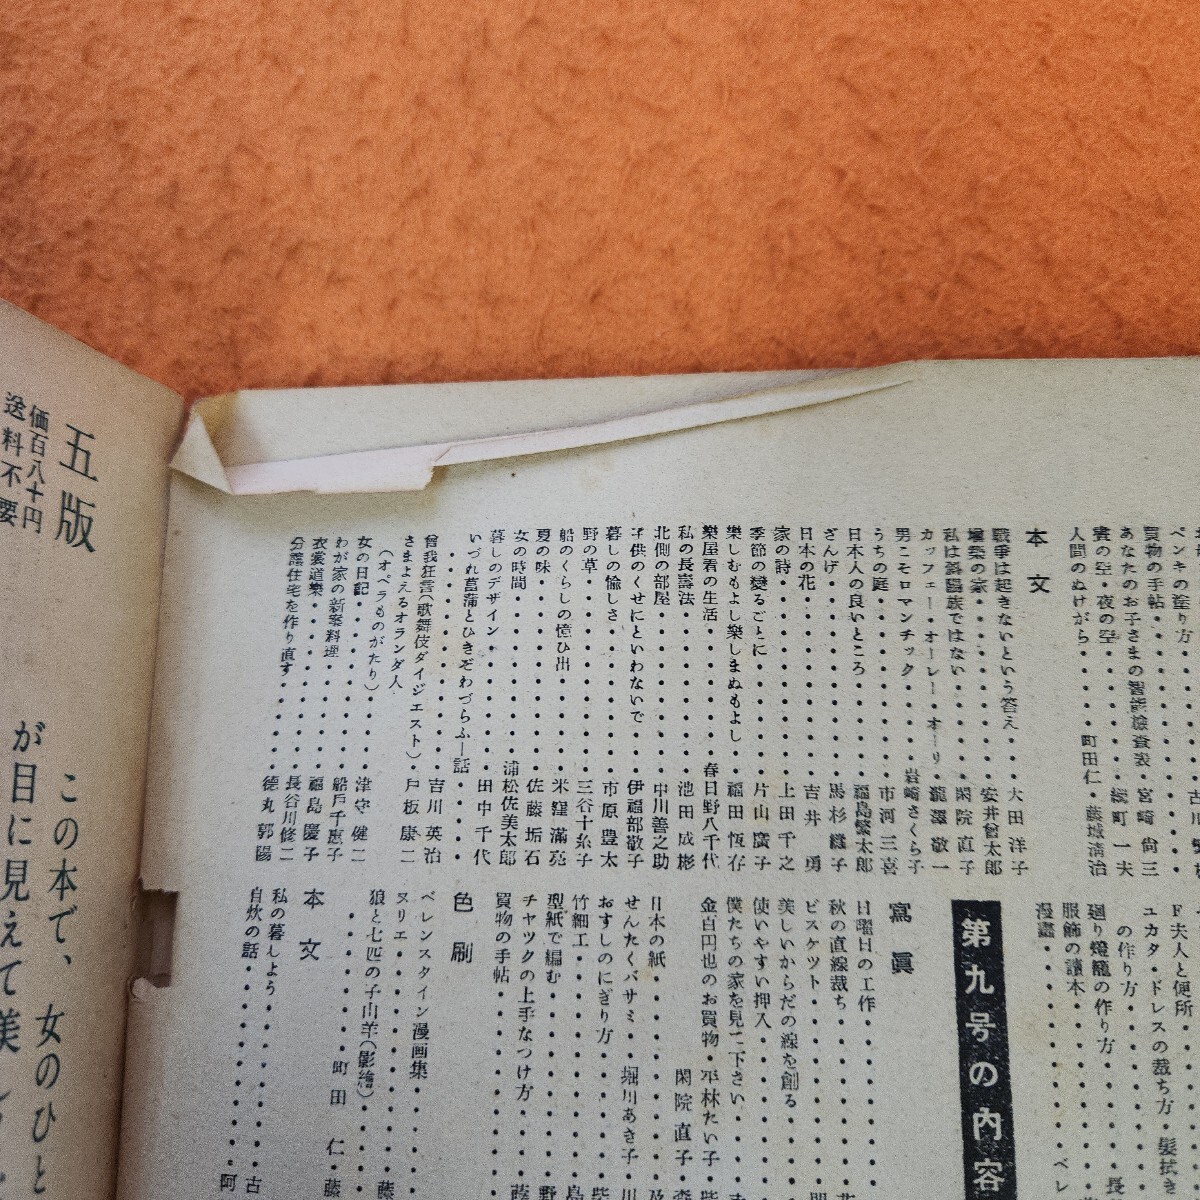 ペンキの塗り方
買物の手帖・宮崎尚三
あなたのお子さまの智能檢査表・続町一夫
晝の空・夜の空
人間のぬけがら・町田仁・藤城清治
本文
戰爭は起きないという答え・大田洋子
増築の家・安井曾太郎
私は斜陽族ではない・閑院直子
カッフェー・オーレー・オーリ・瀧澤敬一
男こそロマンチック・岩崎さくら子
うちの庭・市河三喜
日本人の良いところ・福島繁太郎
ざんげ・馬杉織子
日本の花・吉井勇
家の詩・上田千之
季節の變るごとに・片山廣子
樂しむもよし樂しまぬもよし・福田恆存
樂屋着の生活・春日野八千代
私の長壽法・池田成彬
北側の部屋・中川善之助
子供のくせにといわないで・伊福部敬子
暮しの愉しさ・市原豊太
野の草・三谷十糸子
船のくらしの憶ひ出・米窪滿亮
夏の味・佐藤垢石
女の時間・浦松佐美太郎
暮しのデザイン・田中千代
いづれ菖蒲とひきぞわづらふ―話
曾我狂言(歌舞伎ダイジエスト)・吉川英治
さまよえるオランダ人・戸板康二
(オペラものがたり)
女の日記・津守健二
わが家の新案料理・船戸千惠子
衣裳道樂・福島慶子
分譲住宅を作り直す・長谷川修二
德丸郭陽
F夫人と便所
ユカタ・ドレスの裁ち方・髪拭き
の作り方・長
廻り燈籠の作り方
服飾の讀本・ベレ
漫畫
第九号の内容
寫眞
日曜日の工作
秋の直線裁ち・花
ビスケット
美しいからだの線を創る
使いやすい押入
僕たちの家を見て下さい
金百円也のお買物・平林たい子
閑院直子
日本の紙・及
せんたくバサミ・堀川あき子
おすしのにぎり方・柴
竹細工・島
型紙で編む・野
チヤツクの上手なつけ方・藤
買物の手帖
色刷
ベレンスタイン漫画集
ヌリエ・藤
狼と七匹の子山羊(影繪)
町田仁・藤
本文
私の暮しよう・古
自炊の話・阿
五版
価百八十円
送料不要
この本で、女のひと
が目に見えて美し